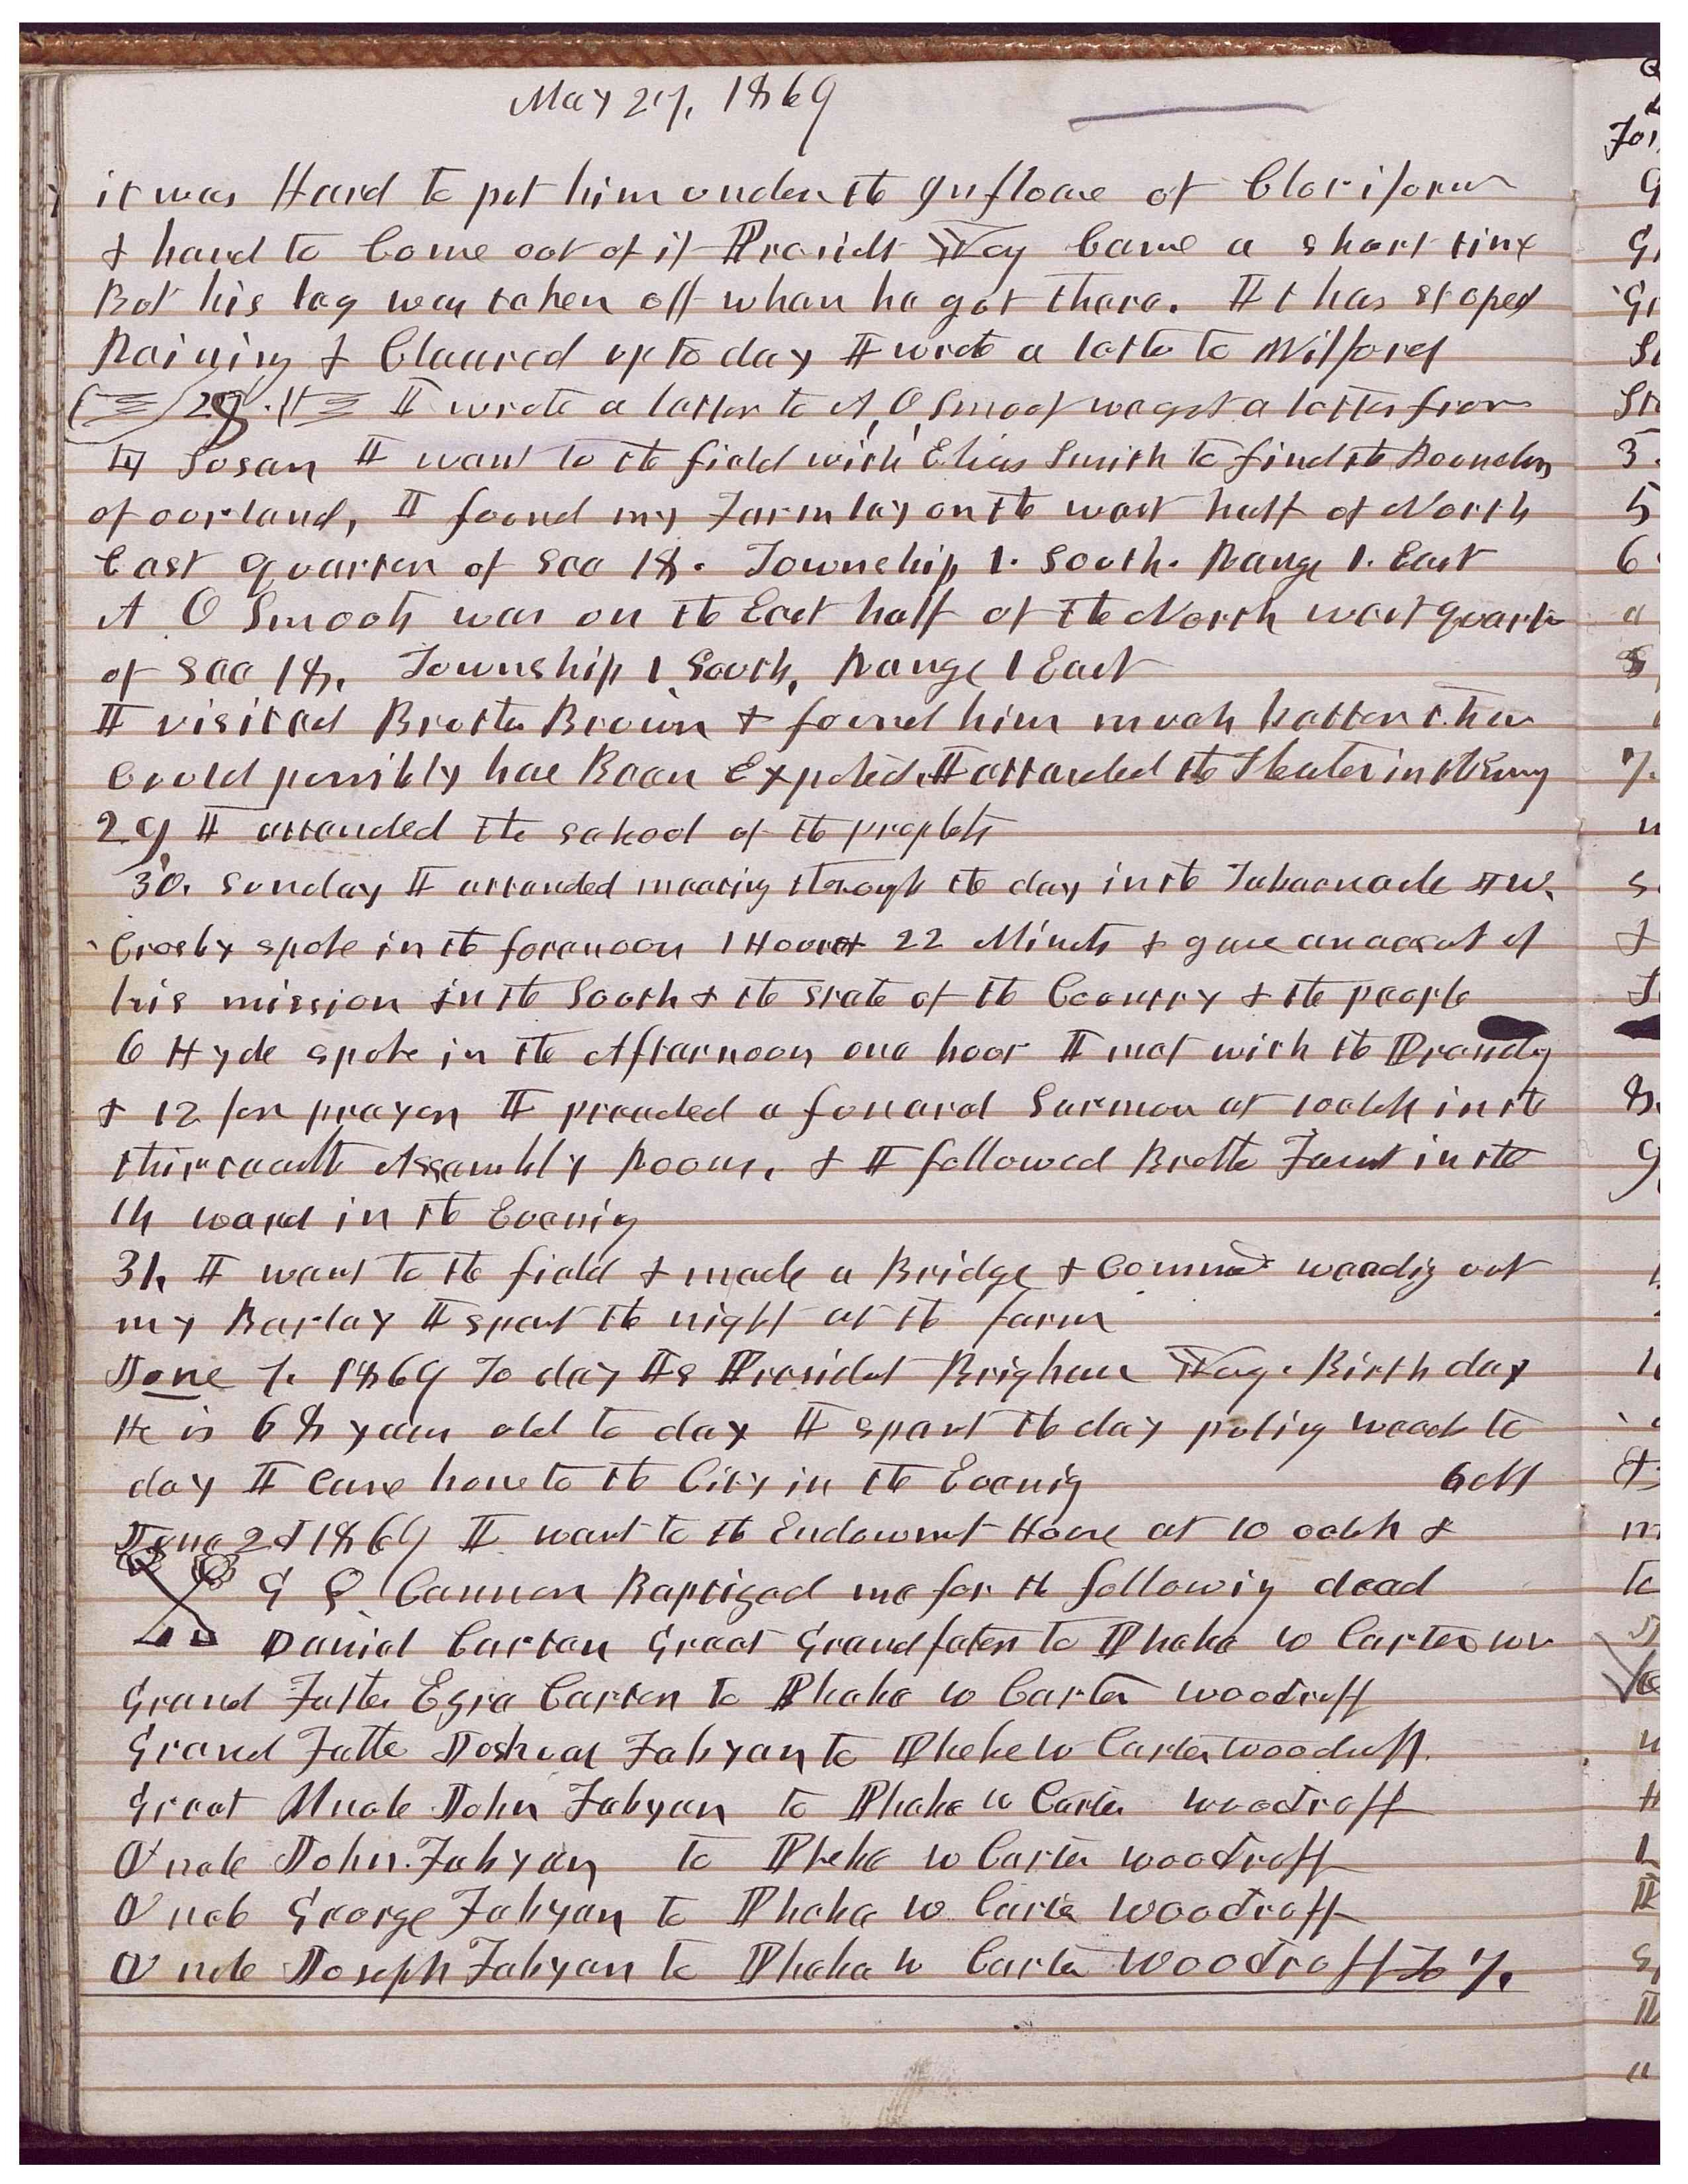 May 27, 1869
it was Hard to put him under the Influence of Cloriform
& hard to Come out of it Presidt Yng Came a short time
But his leg was taken off when he got there. It has stoped
Raining & Cleared up to day I wrote a letter to Wilford
28. I wrote a letter to A, O, Smoot we got a letter from
Susan I went to the field with Elias Smith to find the Boundry
of our land, I found my Farm lay on the west half of North
East quarter of Sec 18. Township 1. South. Range 1. East
A O Smoot was on the East half of the North west quarter
of Sec 18, Township 1 South, Range 1 East
I visited Brother Brown & found him much better than
Could possibly have Been Expected, I attended the Theater in the Evening
29 I attended the school of the prophets
30. Sunday I attended meeting through the day in the Tabernacle W.
Crosby spoke in the forenoon 1 Hour & 22 Minuts & gave an account of
his mission in the South & the state of the Country & the people
O Hyde spoke in the Afternoon one hour I met with the Presidey
& 12 for prayer I preached a foneral Surmon at 10 oclok in the
thirteenth Assembly Rooms, & I followed Brother Faust in the
14 ward in the Evenig
31, I went to the field & made a Bridge & Commencd weedig out
my Barley I spent the night at the farm
June 1. 1869 To day Is President Brigham Yng. Birth day
He is 68 years old to day I spent the day puling weeds to
day I Came home to the City in the Evenig 6 M
June 2d 1869 I went to the Endowmet House at 10 oclok &
G Q Cannon Baptized me for the followig dead
Daniel Carter Great Grandfather to Phebe W Carter
Grand Father Ezra Carter to Phebe W Carter Woodruff
Grand Father Joshua Fabyan to Phebe W Carter Woodruff.
Great Uncle John Fabyan to Phebe W Carter Woodruff
Uncle John. Fabyan to Phebe W Carter Woodruff
Uncle George Fabyan to Phebe W Carter Woodruff
Uncle Joseph Fabyan to Phebe W Carter Woodruff 7.